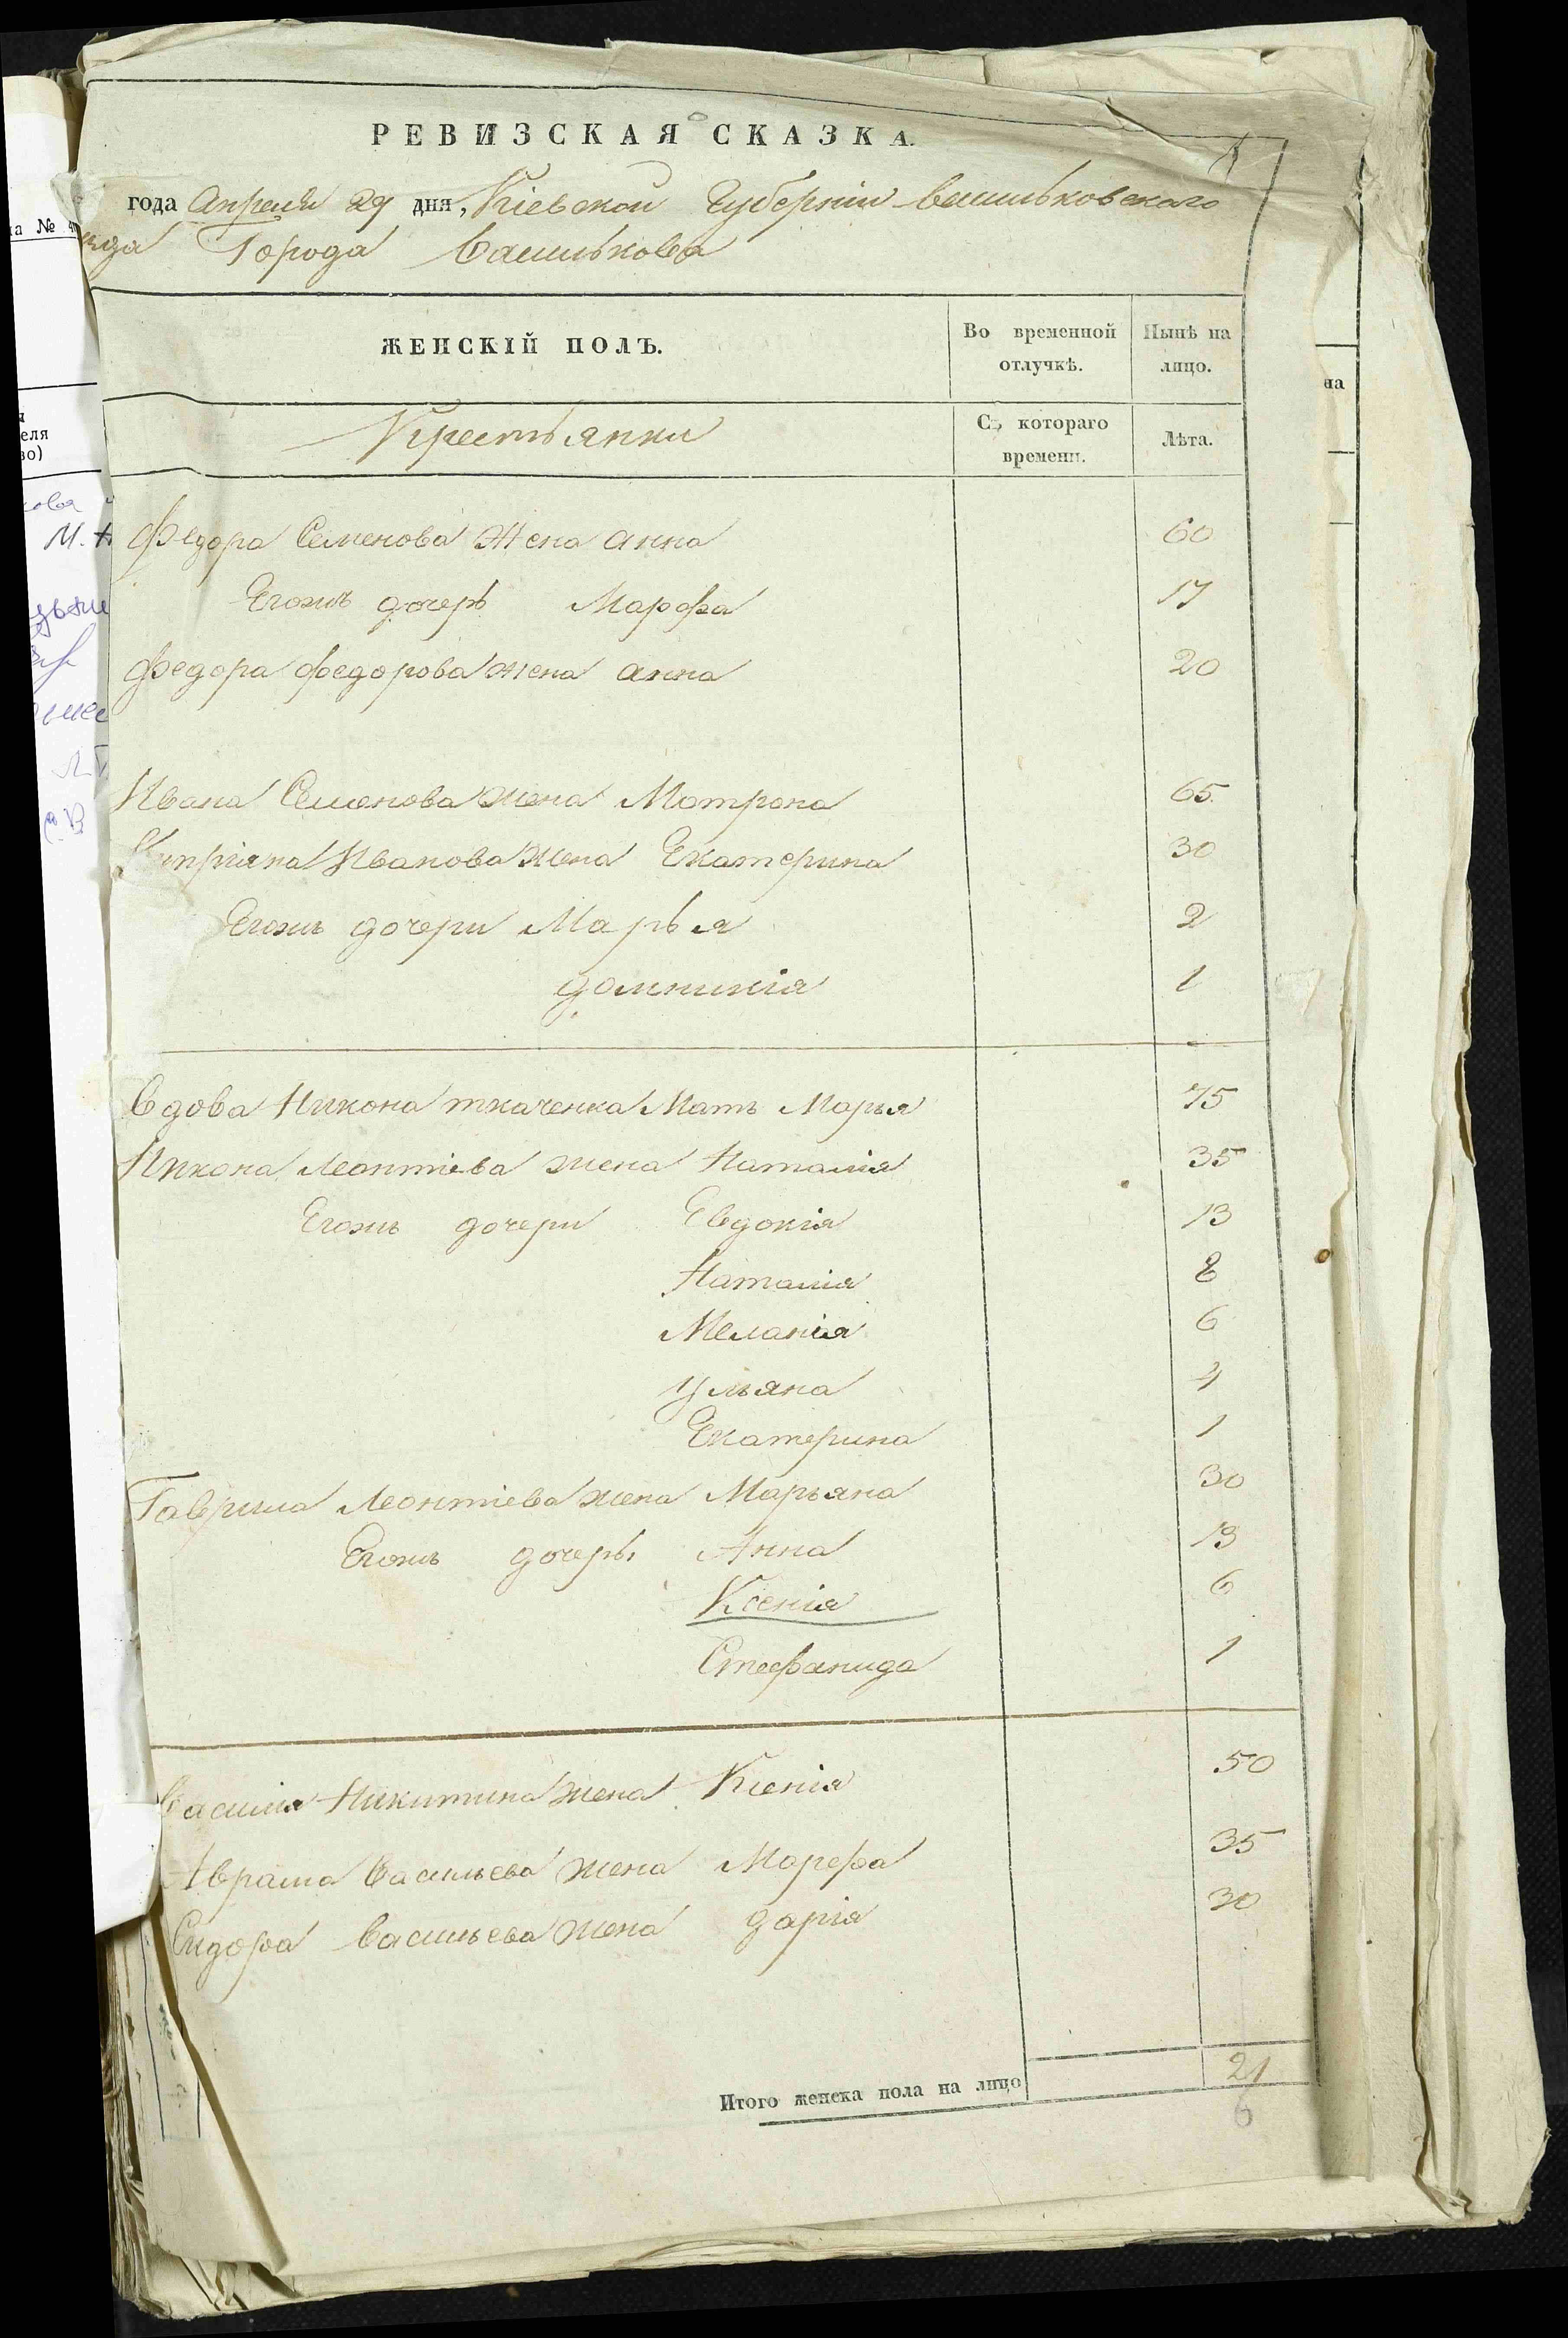 РЕВИЗСКАЯ СКАЗКА.
года Апреля 29 дня, Кіевской Губерніи Васильковскаго
Города Василькова
ЖЕНСКІЙ ПОЛЪ.
Во временной отлучкѣ.
Нынѣ на лицо.
Крестьянки
Съ котораго времени.
Лѣта.
Федора Семенова жена Анна 60
Егожъ дочерь Марфа 17
Федора Федорова жена Анна 20
Ивана Семенова жена Матрона 65
Кипріяна Иванова жена Екатерина 30
Егожъ дочери Марья 2
Домникія 1
Вдова Никона Ткаченка Мать Марья 75
Никона Леонтіева жена Наталія 35
Егожъ дочери Евдокія 13
Наталія 8
Меланія 6
Ульяна 4
Екатерина 1
Гаврила Леонтіева жена Марьяна 30
Егожъ дочеры Анна 13
Ксенія 6
Стефанида 1
Василія Никитина жена Ксенія 50
Аврама Васильева жена Марефа 35
Сидора Васильева жена Дарія 30
Итого женска пола на лицо 21
6